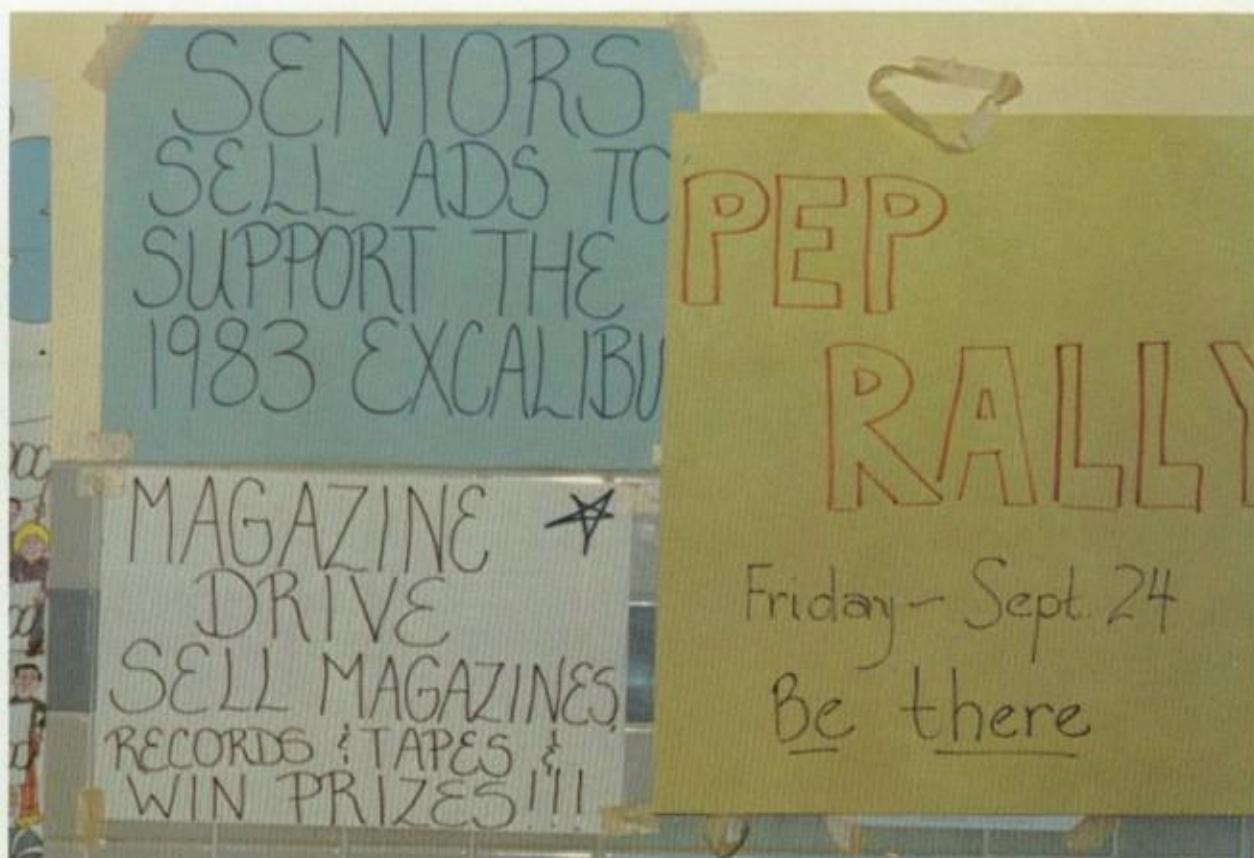 SENIORS
SELL ADS TO
SUPPORT THE
1983 EXCALIBU
MAGAZINE
DRIVE
SELL MAGAZINES,
RECORDS & TAPES &
WIN PRIZES!!!!
PEP
RALLY
Friday - Sept. 24
Be there